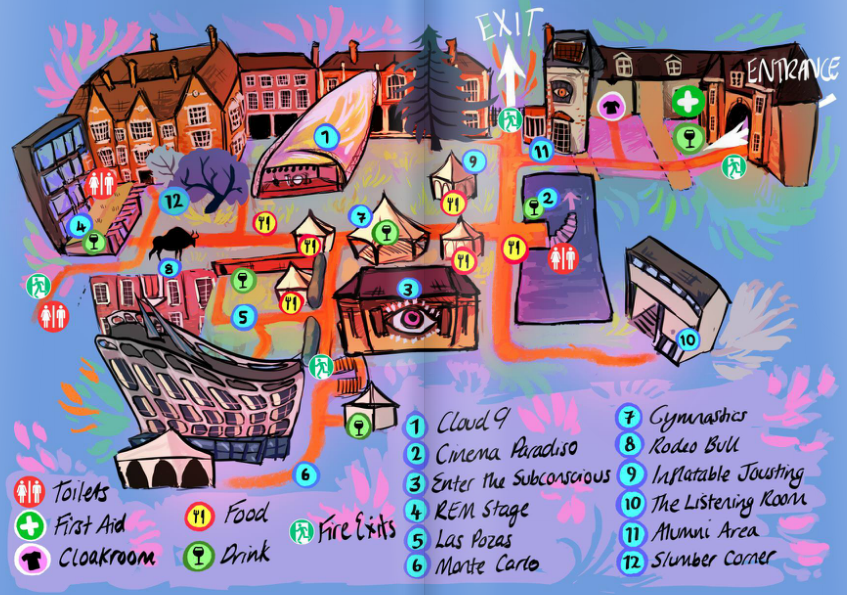 EXIT
ENTRANCE
1
9
11
2
12
7
4
8
3
5
10
6
1 Cloud 9
2 Cinema Paradiso
3 Enter the Subconscious
4 REM Stage
5 Las Pozas
6 Monte Carlo
7 Gymnastics
8 Rodeo Bull
9 Inflatable Jousting
10 The Listening Room
11 Alumni Area
12 Slumber Corner
Toilets
First Aid
Cloakroom
Food
Drink
Fire Exits